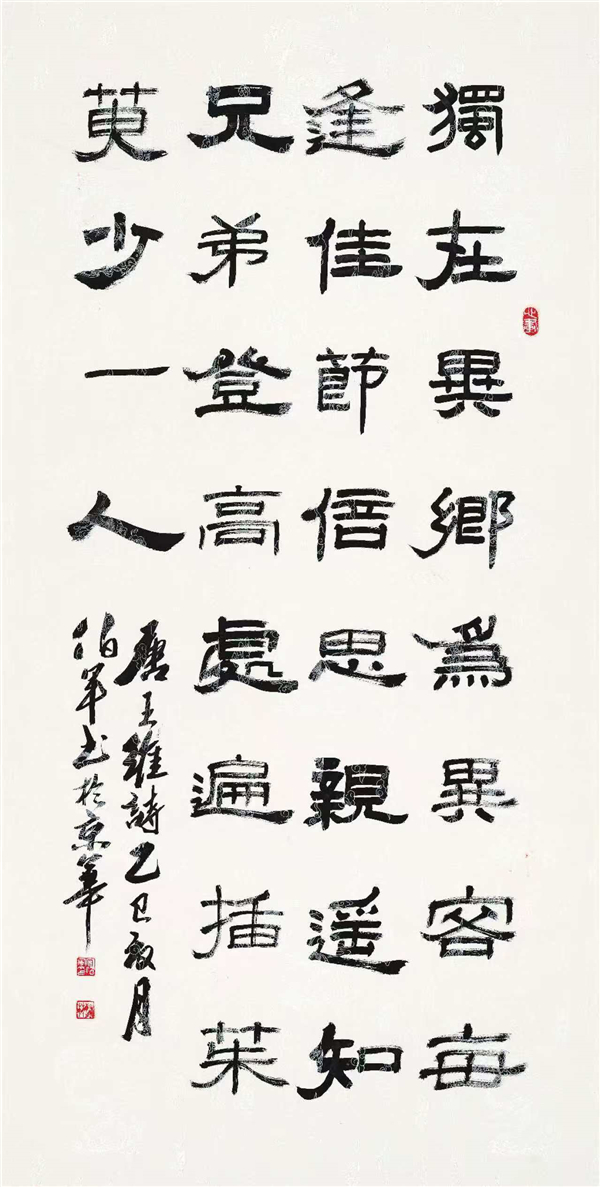 獨在異鄉爲異客每
逢佳節倍思親遥知
兄弟登高處遍插茱
萸少一人
唐王維詩乙巳月
伯軍书於京華